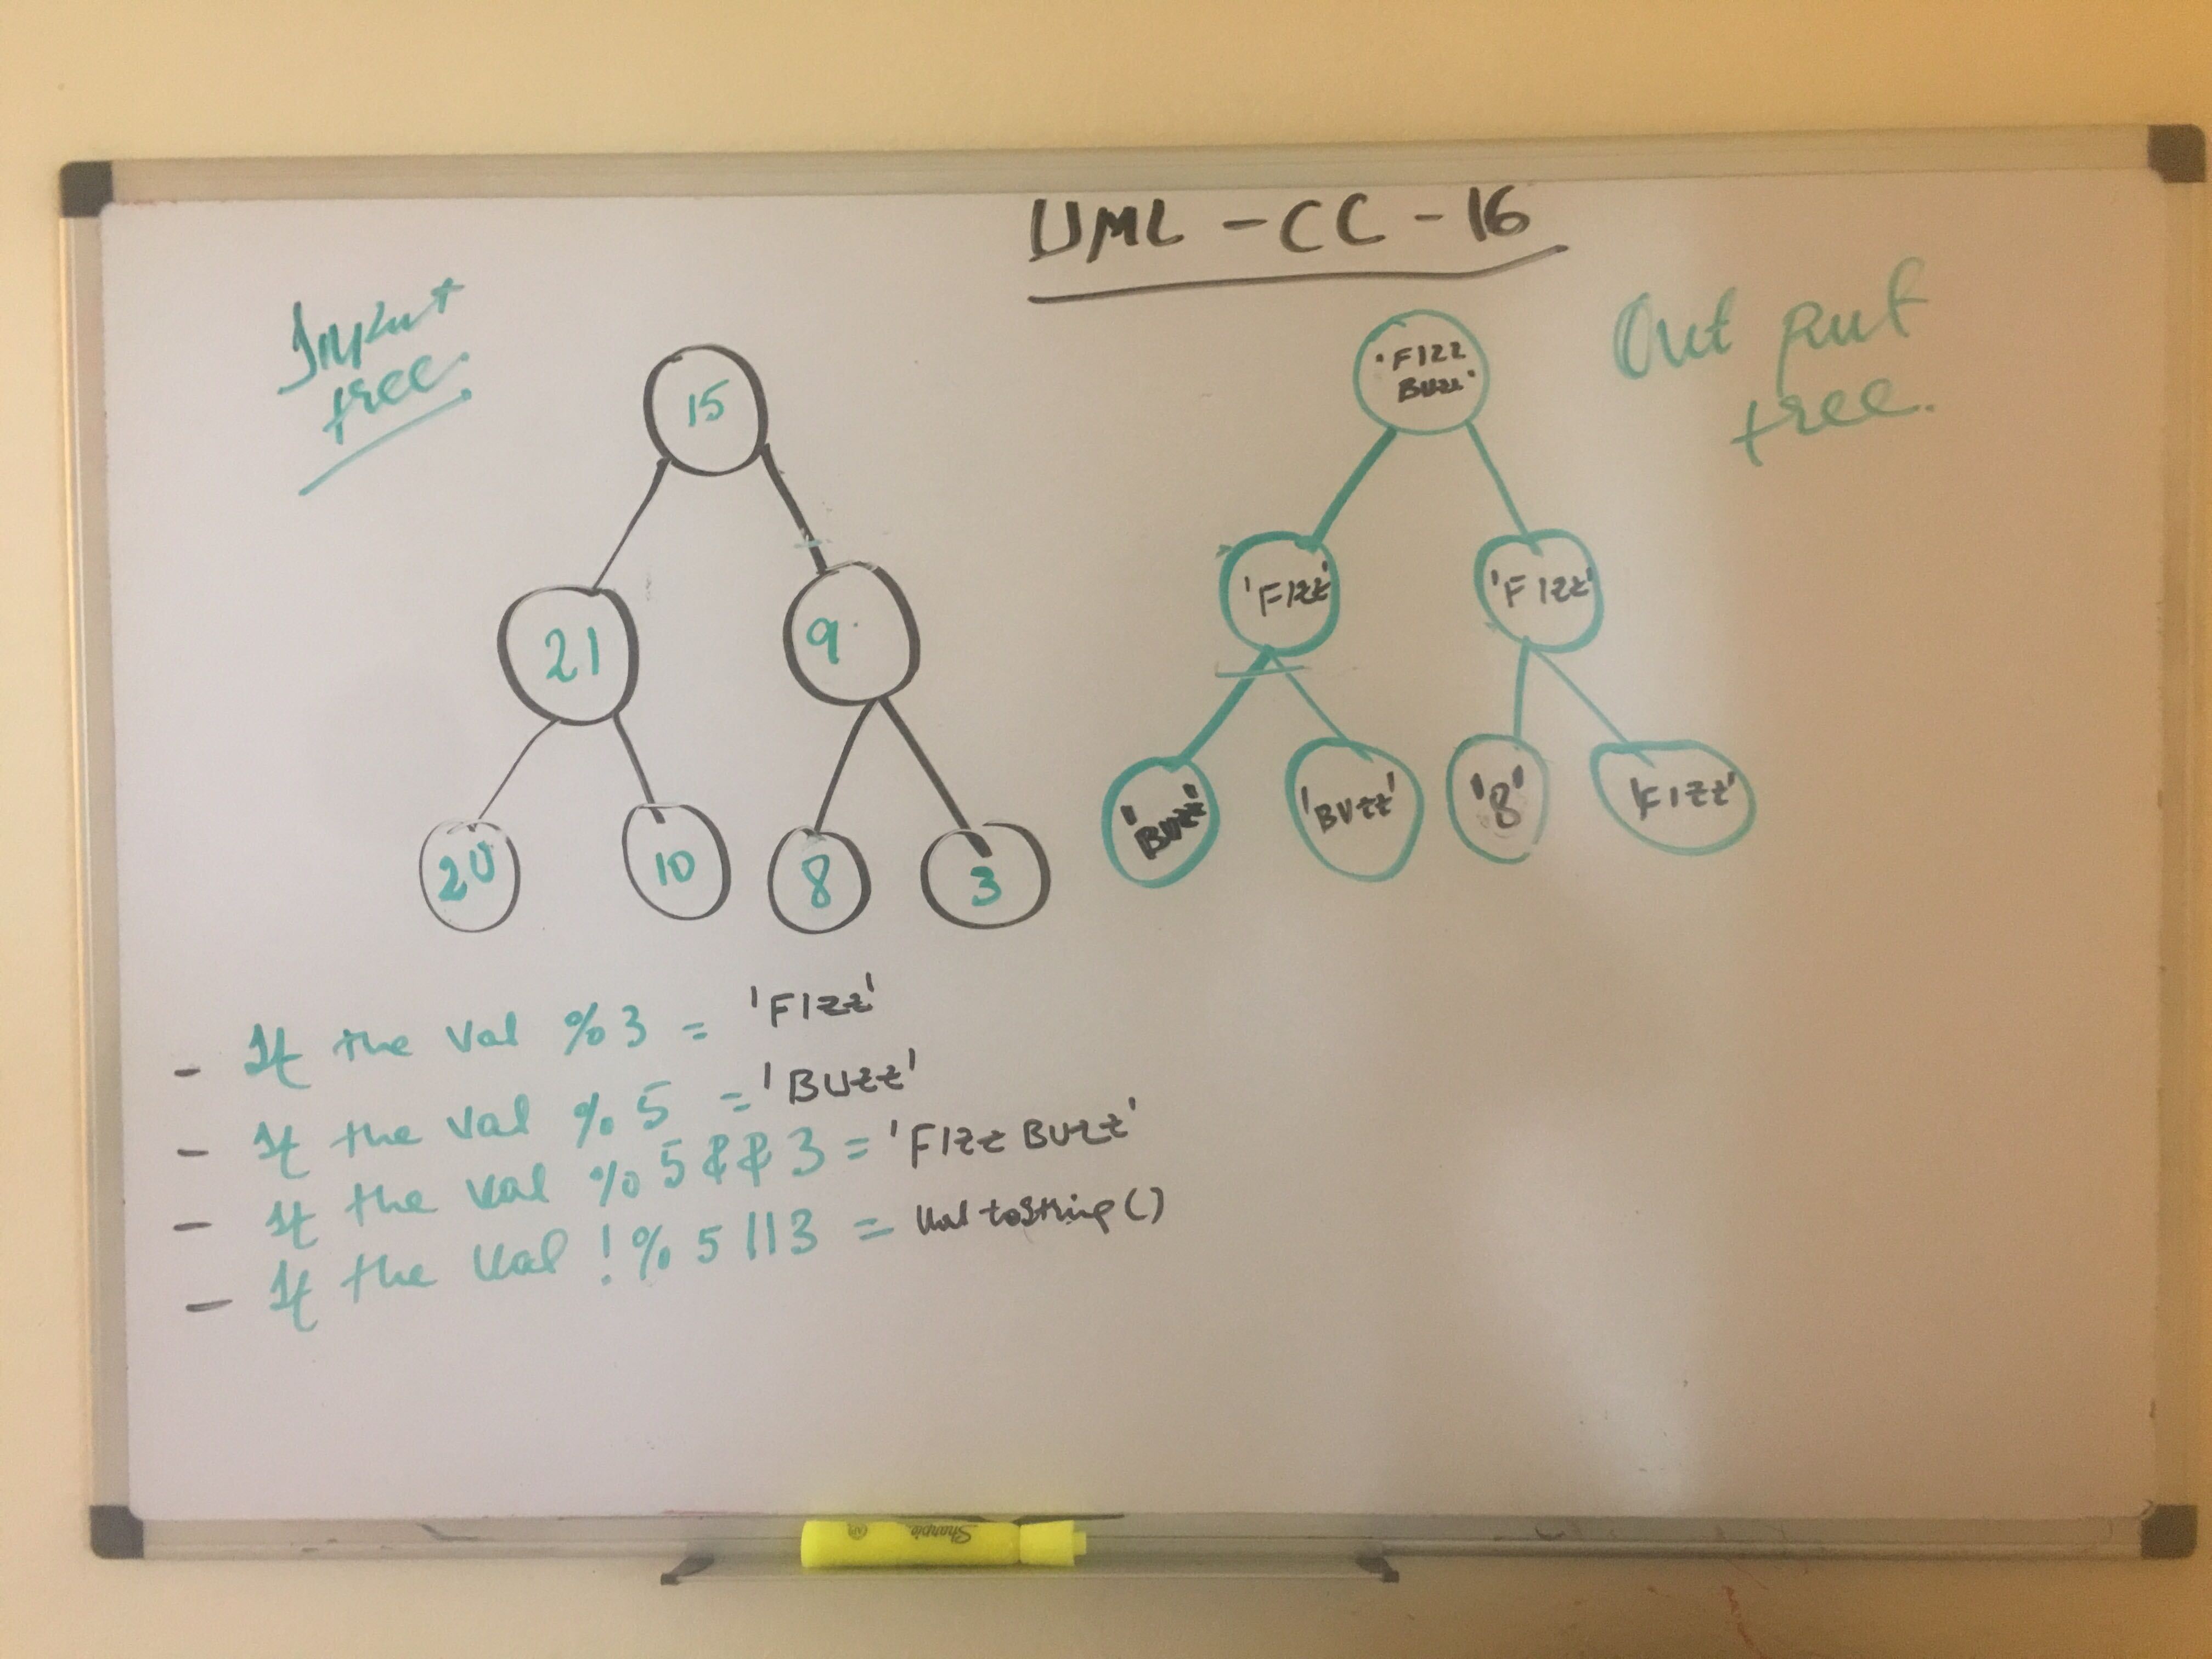 UML - CC - 16
Input
tree.
15
21
9
20
10
8
3
Out put
tree.
'FIZZ
BUZZ'
'FIZZ'
'FIZZ'
'BUZZ'
'BUZZ'
'8'
'FIZZ'
- If the val % 3 = 'FIZZ'
- If the val % 5 = 'BUZZ'
- If the val % 5 && 3 = 'FIZZ BUZZ'
- If the val ! % 5 || 3 = val toString()
Sharpie